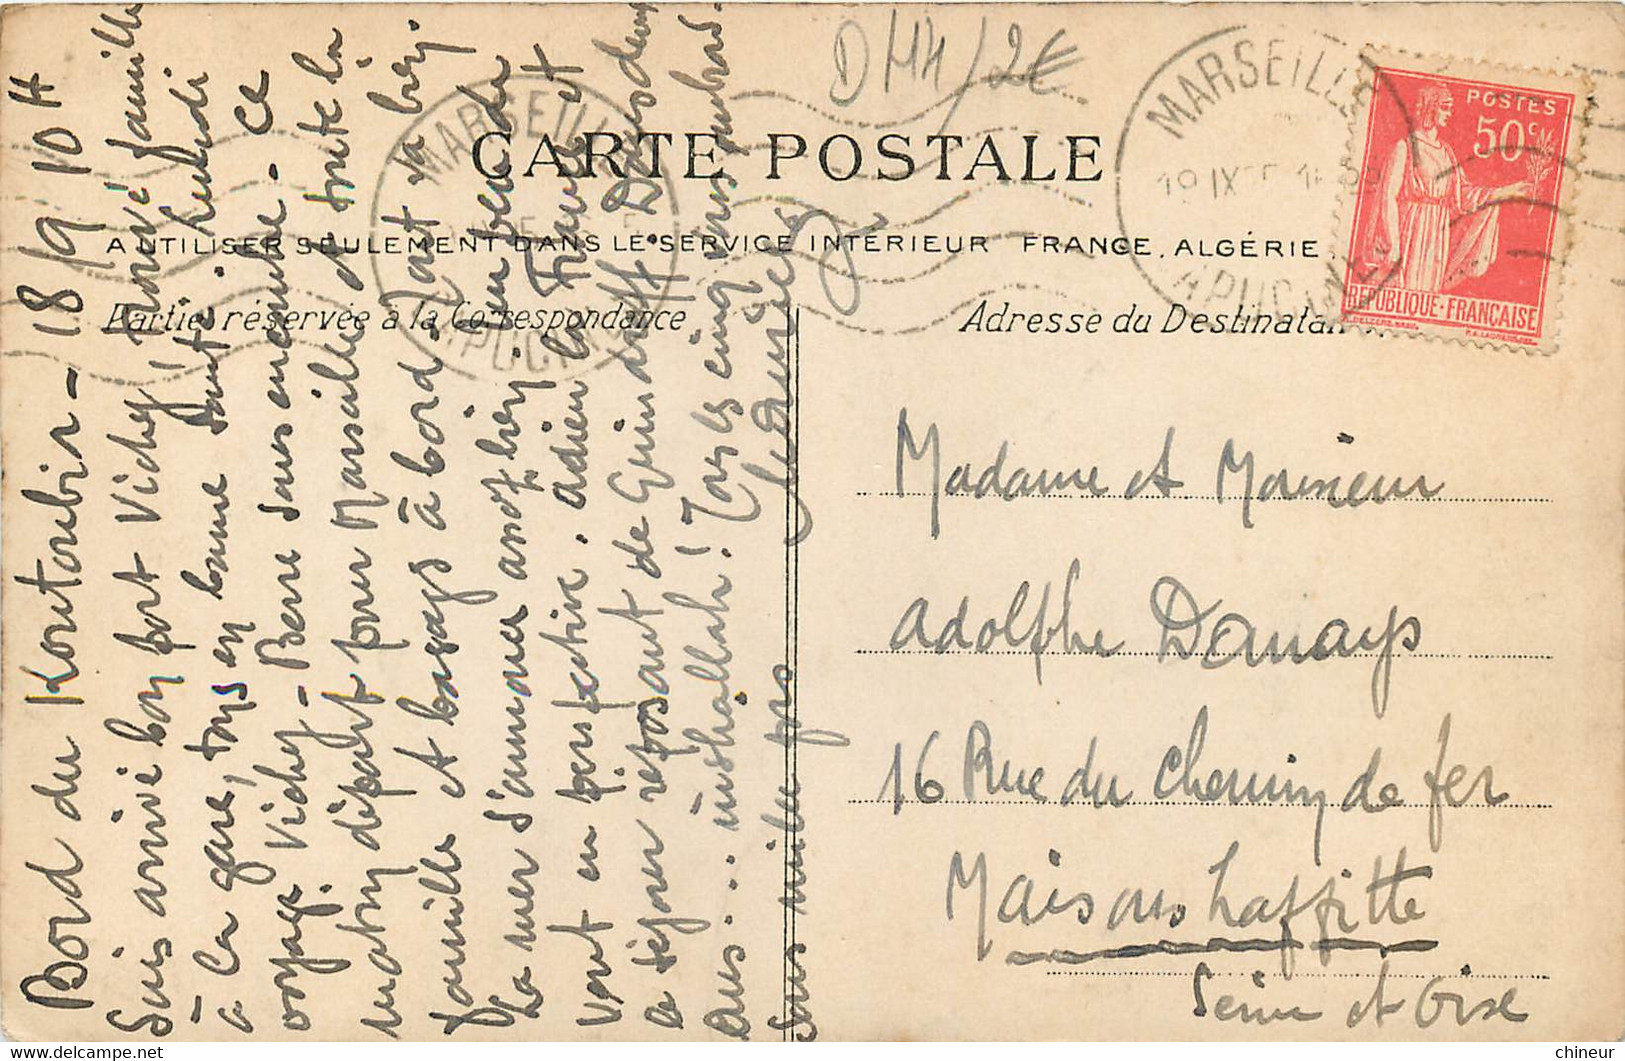 D 144/2€
MARSEILLE
19 IX
CAPUCINES
POSTES
50c
REPUBLIQUE·FRANÇAISE
CARTE POSTALE
A UTILISER SEULEMENT DANS LE SERVICE INTÉRIEUR FRANCE, ALGÉRIE
Partie réservée à la Correspondance
Adresse du Destinataire
MARSEILLE
CAPUCINES
Bord du Koutoubia – 18/9 10H
Suis arrivé bon port Vichy, trouvé famille
à la gare, tous en bonne santé. Lundi
voyage Vichy – Berre sans encombre – ce
matin départ pour Marseille et toute la
famille et bagages à bord. Tout va bien.
La mer s'annonce assez bien, un peu de
vent en perspective. Adieu la France et
le séjour reposant de Guindreff Dans deux
ans... inshallah! Tous les cinq vous embrassons
Madame et Monsieur
Adolphe Damays
16 Rue du Chemin de fer
Maisons Laffitte
Seine et Oise
chineur